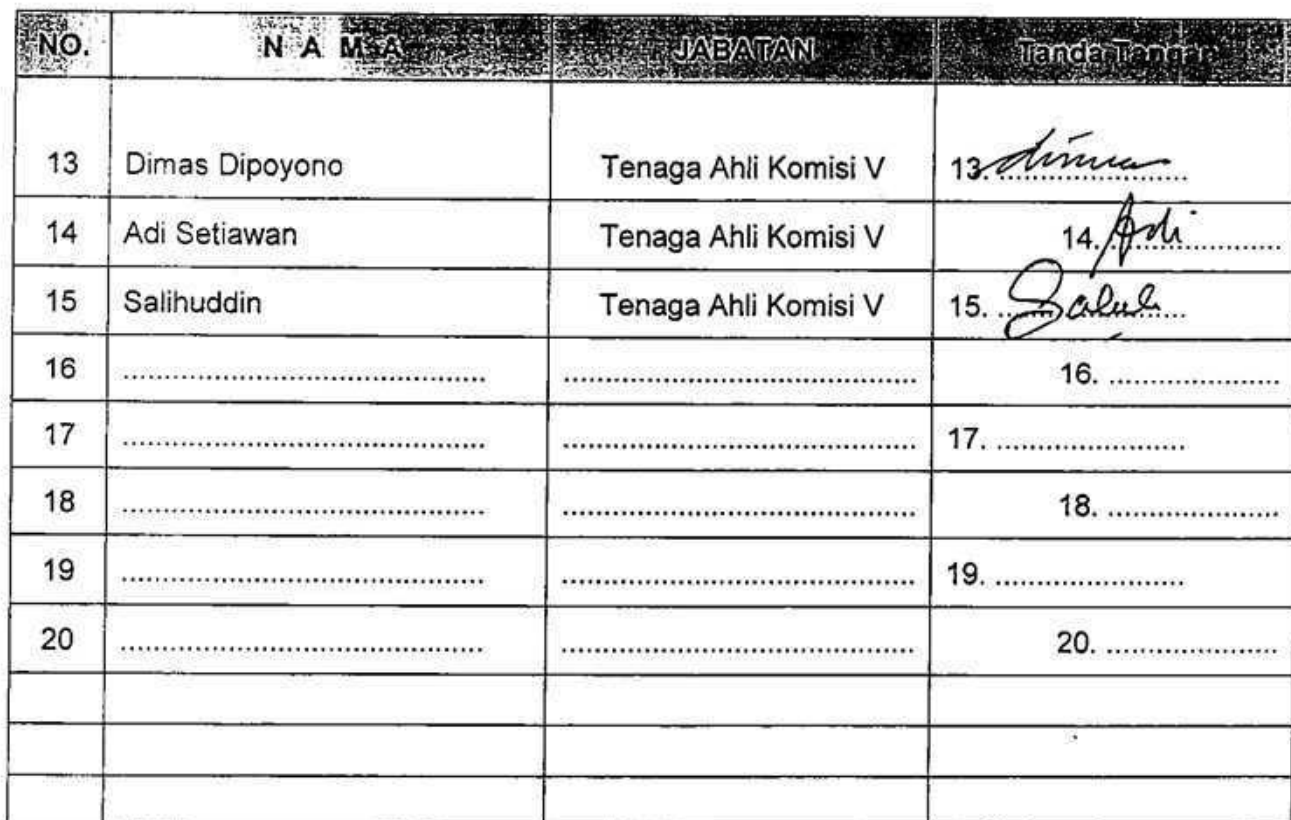 NO. N A M A JABATAN Tanda Tangan
13 Dimas Dipoyono Tenaga Ahli Komisi V 13. dimas
14 Adi Setiawan Tenaga Ahli Komisi V 14. Adi
15 Salihuddin Tenaga Ahli Komisi V 15.
16 .................................... .................................... 16. .................
17 .................................... .................................... 17. ...................
18 .................................... .................................... 18. .................
19 .................................... .................................... 19. ...................
20 .................................... .................................... 20. .................